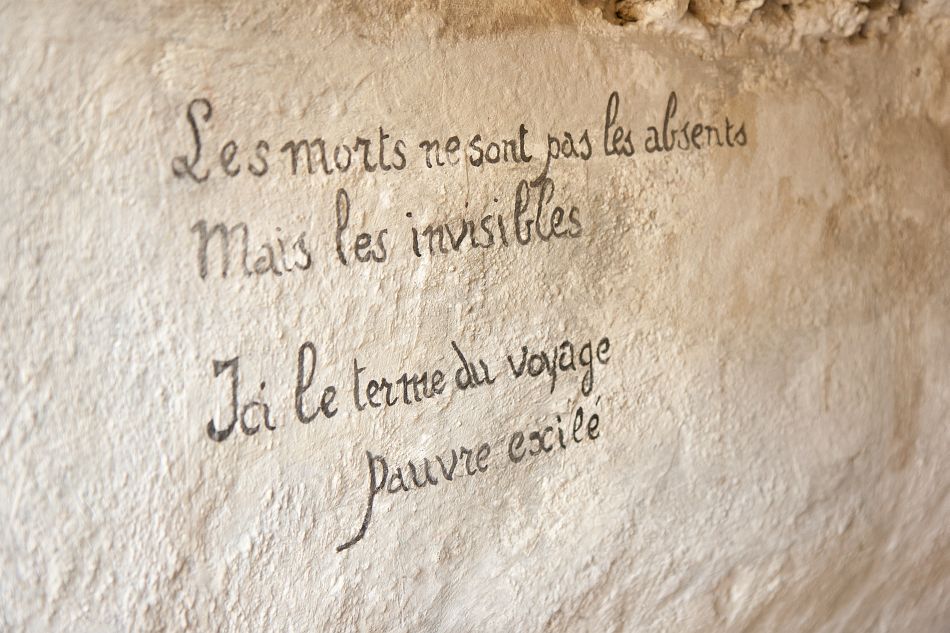 Les morts ne sont pas les absents
Mais les invisibles
Ici le terme du voyage
pauvre exilé